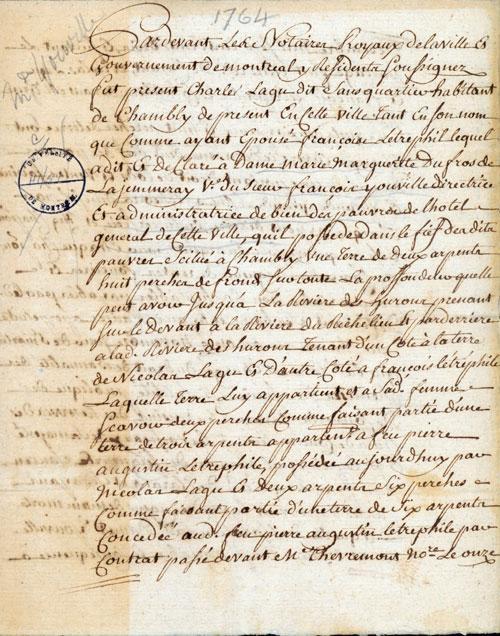 1764
Pardevant Les Notaires Royaux de la ville Et
Gouvernement de montreal y Residents Soussignez
fut present Charles Laqu dit Sansquartier habitant
de Chambly de present En Cette ville tant En son nom
que Comme ayant Epousé françoise Letrephil lequel
a dit Et declaré à Dame Marie marguerite Dufros de
Lajemmeray Ve. du Sieur francois youville directrice
Et administratrice de bien des pauvres de l'hotel
general de Cette ville, qu'il possede dans le fief des dits
pauvres scitué à Chambly Une Terre de deux arpents
huit perches de front sur toute La proffondeur quelle
peut avoir Jusqua La Riviere des hurons prenant
sur le devant a la Riviere de Richelieu & par derriere
a lad. Riviere des hurons Tenant d'un Coté à la terre
de Nicolas Laque Et D'autre Coté a francois letréphile
Laquelle Terre Luy appartient et a Sad. femme
Scavoir deux perches Comme faisant partie d'une
terre de trois arpents appartent. a feu pierre
augustin Letrephile, possédée aujourdhuy par
Nicolas Laque Et Deux arpents Six perches
Comme faisant partie d'une terre de Six arpents
Concedée aud. feu pierre augustin letréphile par
Contrat passé devant Me. Thevremont Nore. Le onze